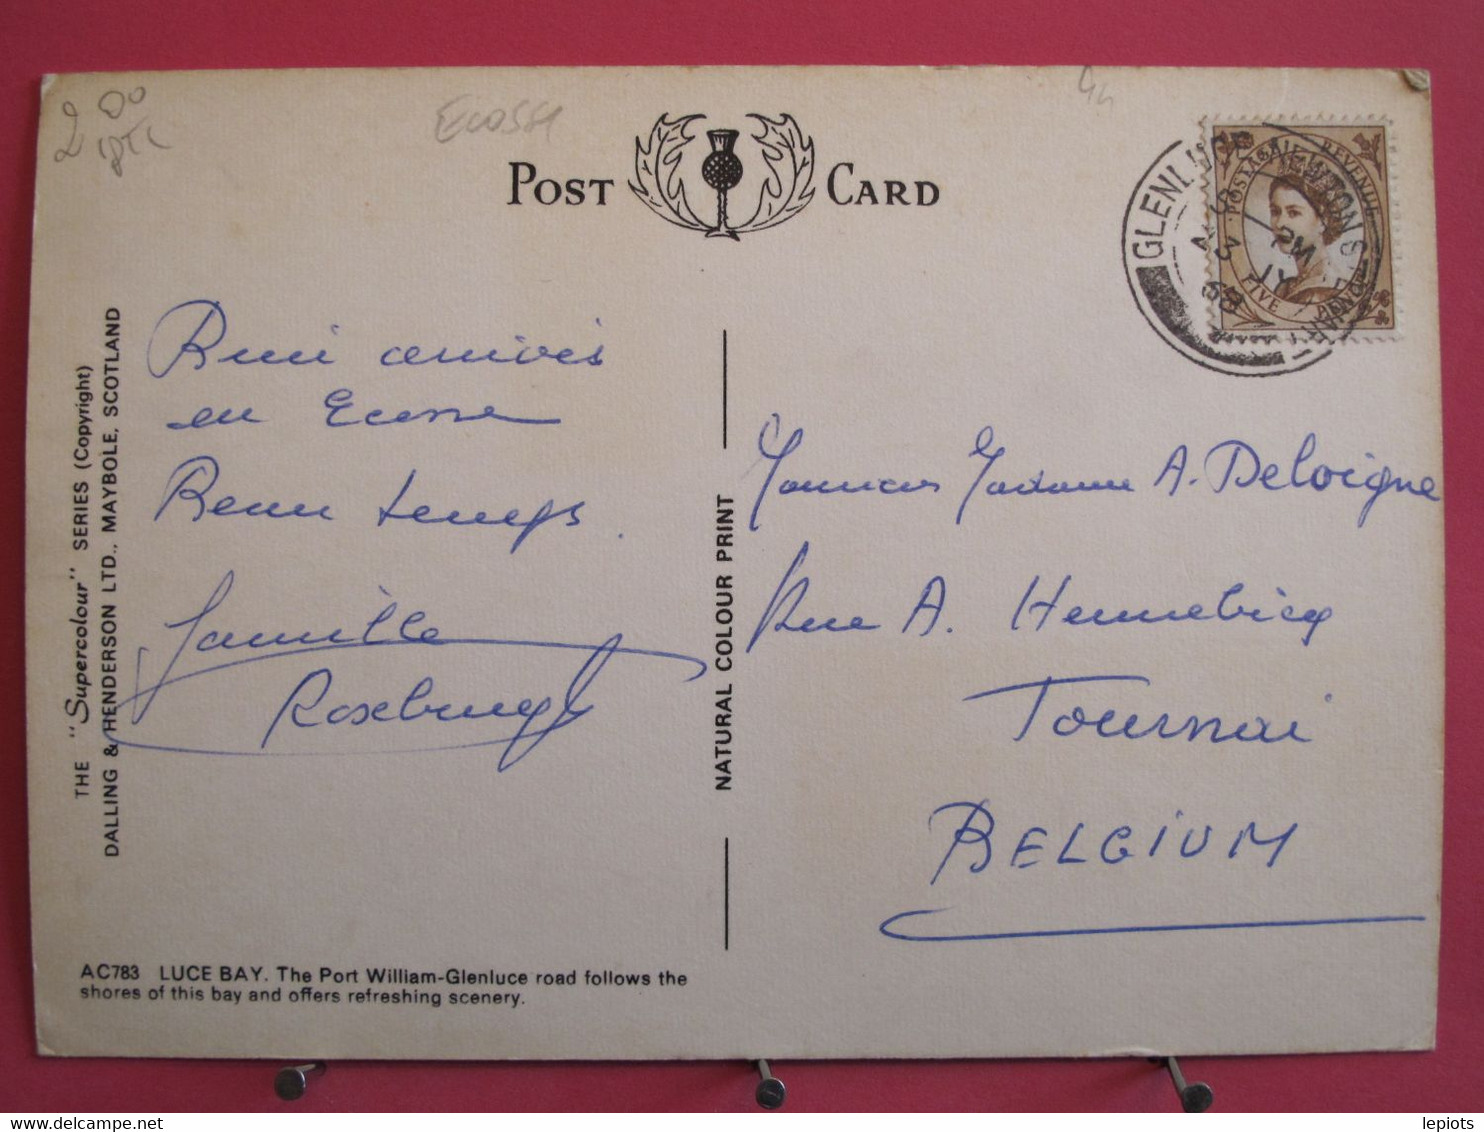 2 00
Ecosse
POST CARD
GLENLUCE NEWTON S
POSTAGE REVENUE
FIVE PENCE
PM
THE "Supercolour" SERIES (Copyright)
DALLING & HENDERSON LTD., MAYBOLE, SCOTLAND
Bien arrivés
en Ecosse
Beau temps.
Famille
Roxburgh
NATURAL COLOUR PRINT
Monsieur Madame A. Deloigne
Rue A. Hennebicq
Tournai
BELGIUM
AC783 LUCE BAY. The Port William-Glenluce road follows the
shores of this bay and offers refreshing scenery.
lepiots